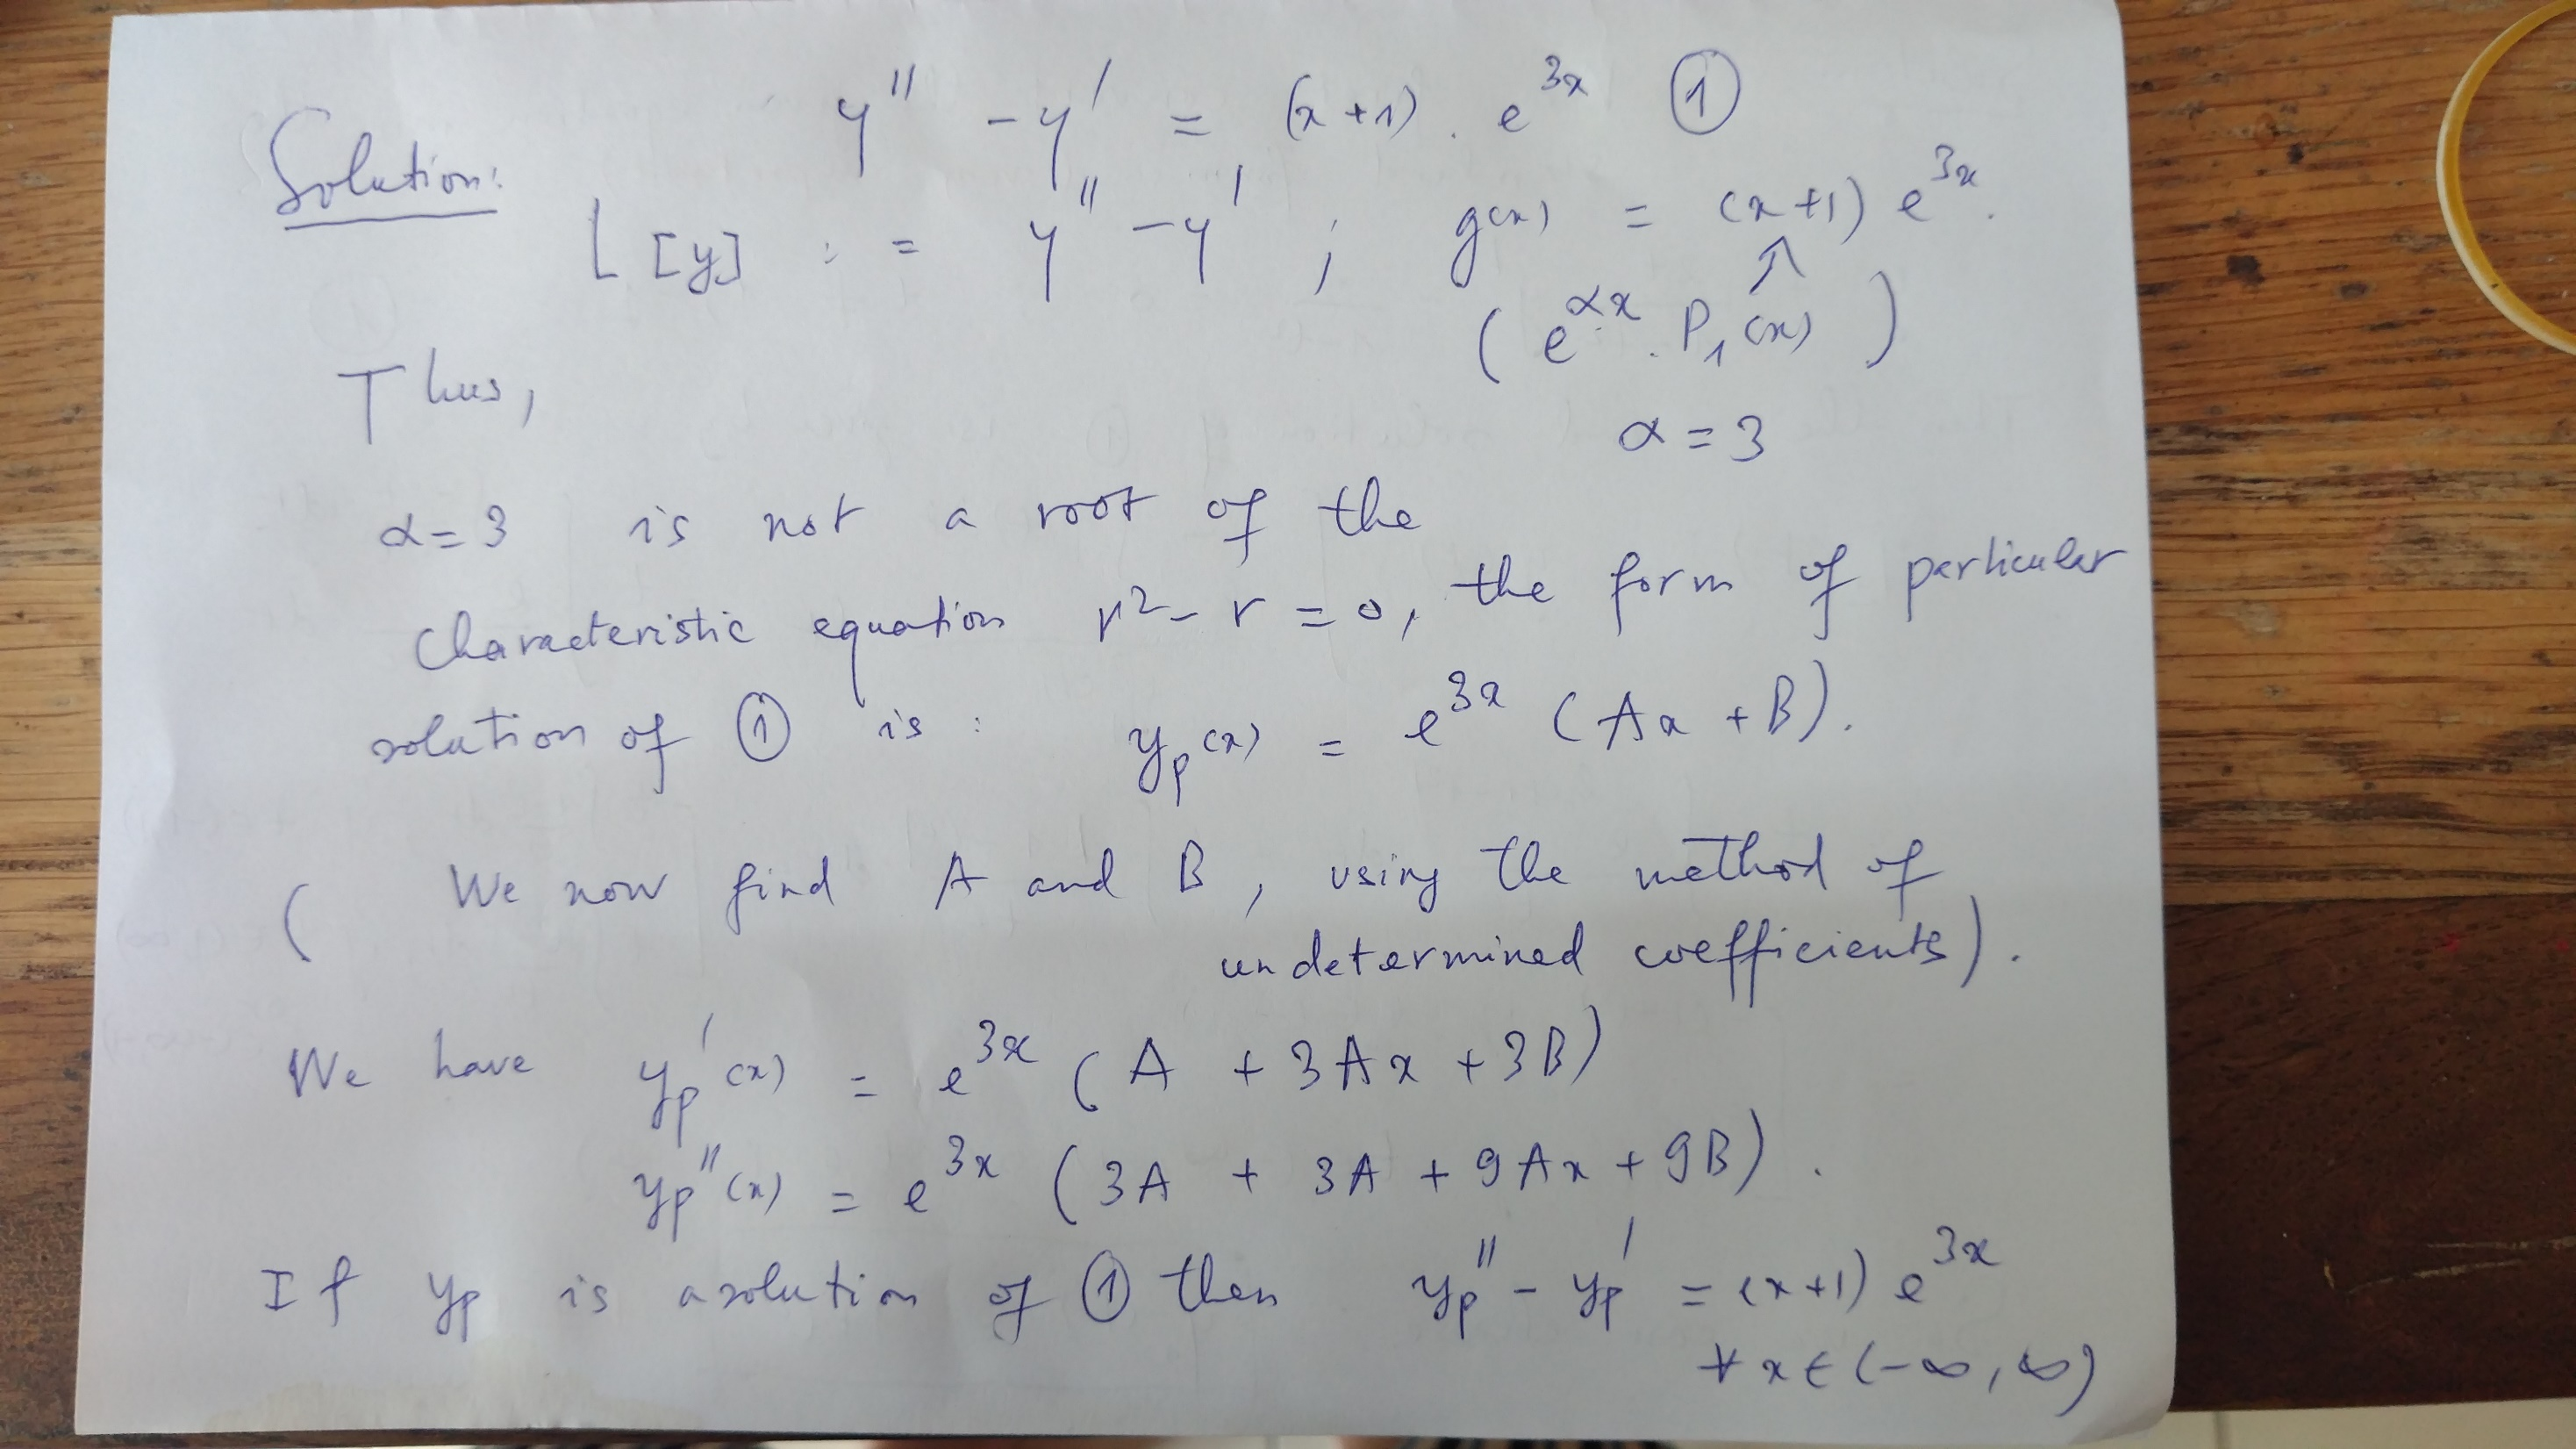 y'' - y' = (x+1) . e^{3x} ①
Solution:
L[y] := y'' - y' ; g(x) = (x+1) e^{3x}.
(e^{αx} . P_1(x))
Thus,
α = 3
α = 3 is not a root of the
characteristic equation r^2 - r = 0, the form of particular
solution of ① is : y_p(x) = e^{3x} (Ax + B).
( We now find A and B, using the method of
undetermined coefficients).
We have y_p'(x) = e^{3x} (A + 3Ax + 3B)
y_p''(x) = e^{3x} (3A + 3A + 9Ax + 9B) .
If y_p is a solution of ① then y_p'' - y_p' = (x+1) e^{3x}
∀ x ∈ (-∞, ∞)